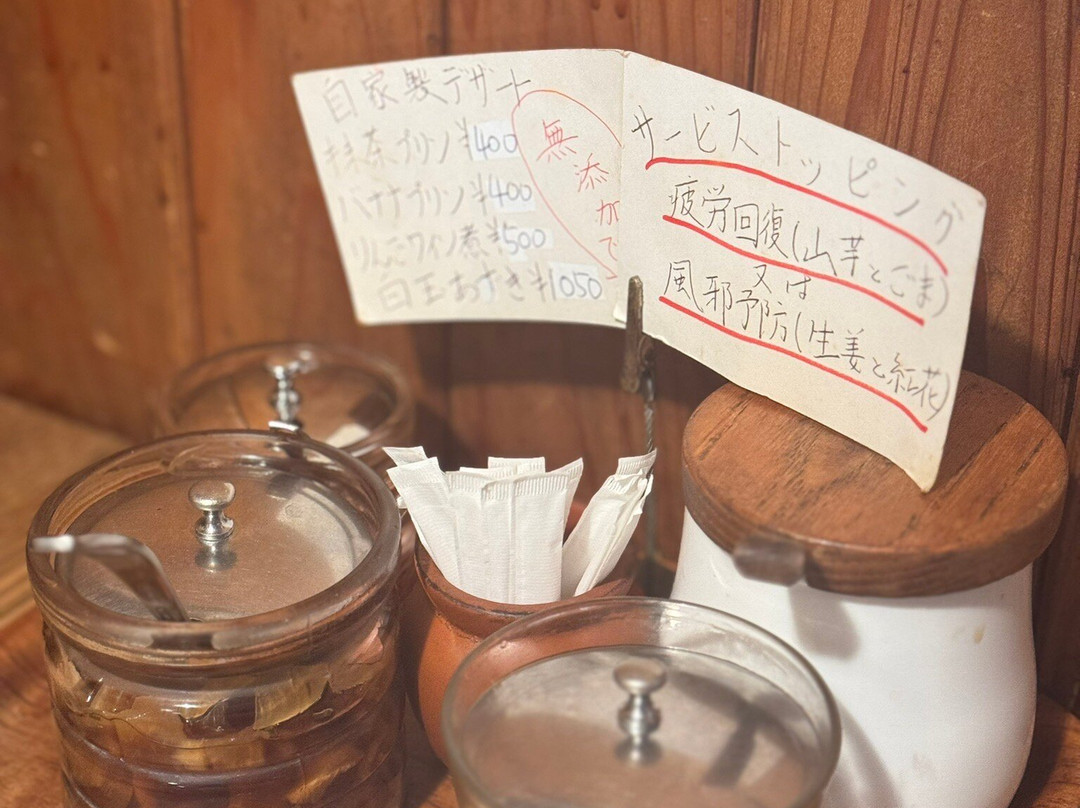 自家製デザート
抹茶プリン ¥400
バナナプリン ¥400
りんごワイン煮 ¥500
白玉あずき ¥1050
無添加で
サービストッピング
疲労回復(山芋とごま)
又は
風邪予防(生姜と紅花)